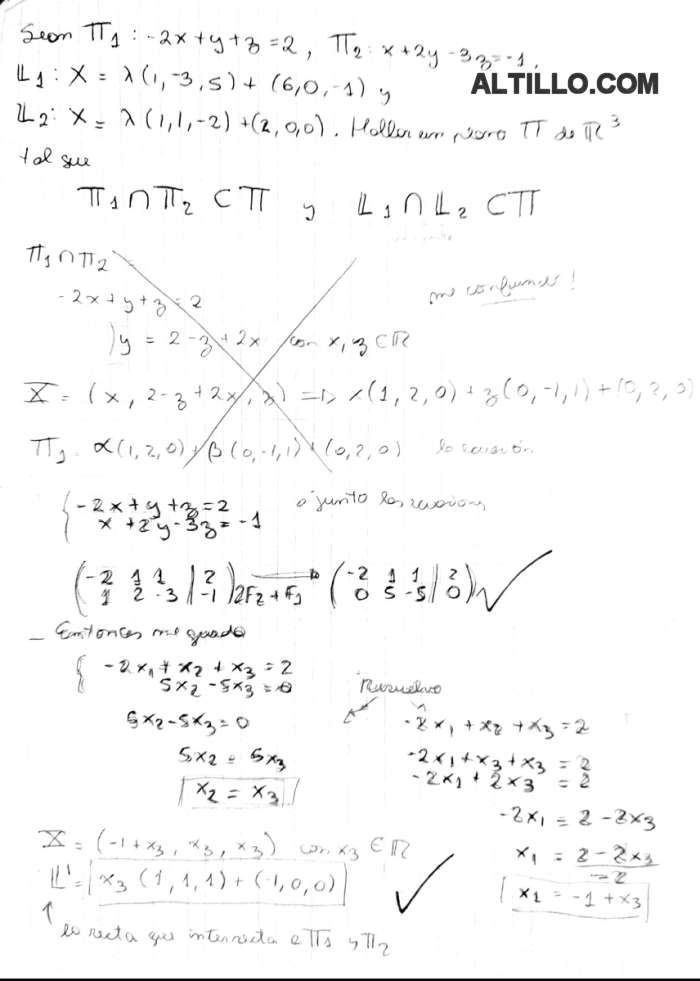 Sean Π1: -2x+y+z=2, Π2: x+2y-3z=-1,
ALTILLO.COM
𝕃1: X = λ(1,-3,5) + (6,0,-1) y
𝕃2: X = λ(1,1,-2)+(2,0,0). Hallar un plano Π de ℝ³
tal que
Π1∩Π2 ⊂ Π y 𝕃1∩𝕃2 ⊂ Π
Π1∩Π2
me confundí!
-2x+y+z=2
y = 2-z+2x con x,z ∈ ℝ
X = (x, 2-z+2x, z) => x(1,2,0)+z(0,-1,1)+(0,2,0)
Π1: α(1,2,0)+β(0,-1,1)+(0,2,0)
{ -2x+y+z=2
x+2y-3z=-1
junto las
(-2 1 1 | 2
1 2 -3 | -1) 2F2+F1 → (-2 1 1 | 2
0 5 -5 | 0) ✓
- Entonces me queda
{ -2x1+x2+x3=2
5x2-5x3=0
5x2-5x3=0
5x2=5x3
x2=x3
Resuelvo
-2x1+x2+x3=2
-2x1+x3+x3=2
-2x1+2x3=2
-2x1=2-2x3
x1=2-2x3
-2
x1=-1+x3
X=(-1+x3, x3, x3) con x3 ∈ ℝ
𝕃'= x3(1,1,1)+(-1,0,0) ✓
↑
la recta que intersecta a Π1 y Π2